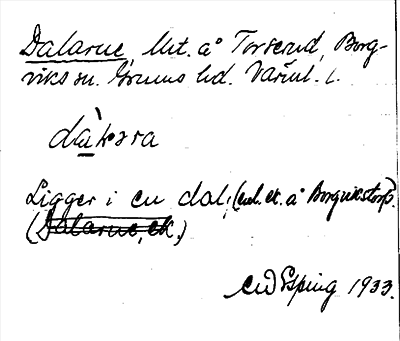 Dalarne, lht. å Torserud, Borg-
viks sn. Grums hd. Värml. l.
dàꞎəra
Ligger i en dal; (enl. ek. å Borgvikstorp.)
(Dalarne, ek.)
Esping 1933.